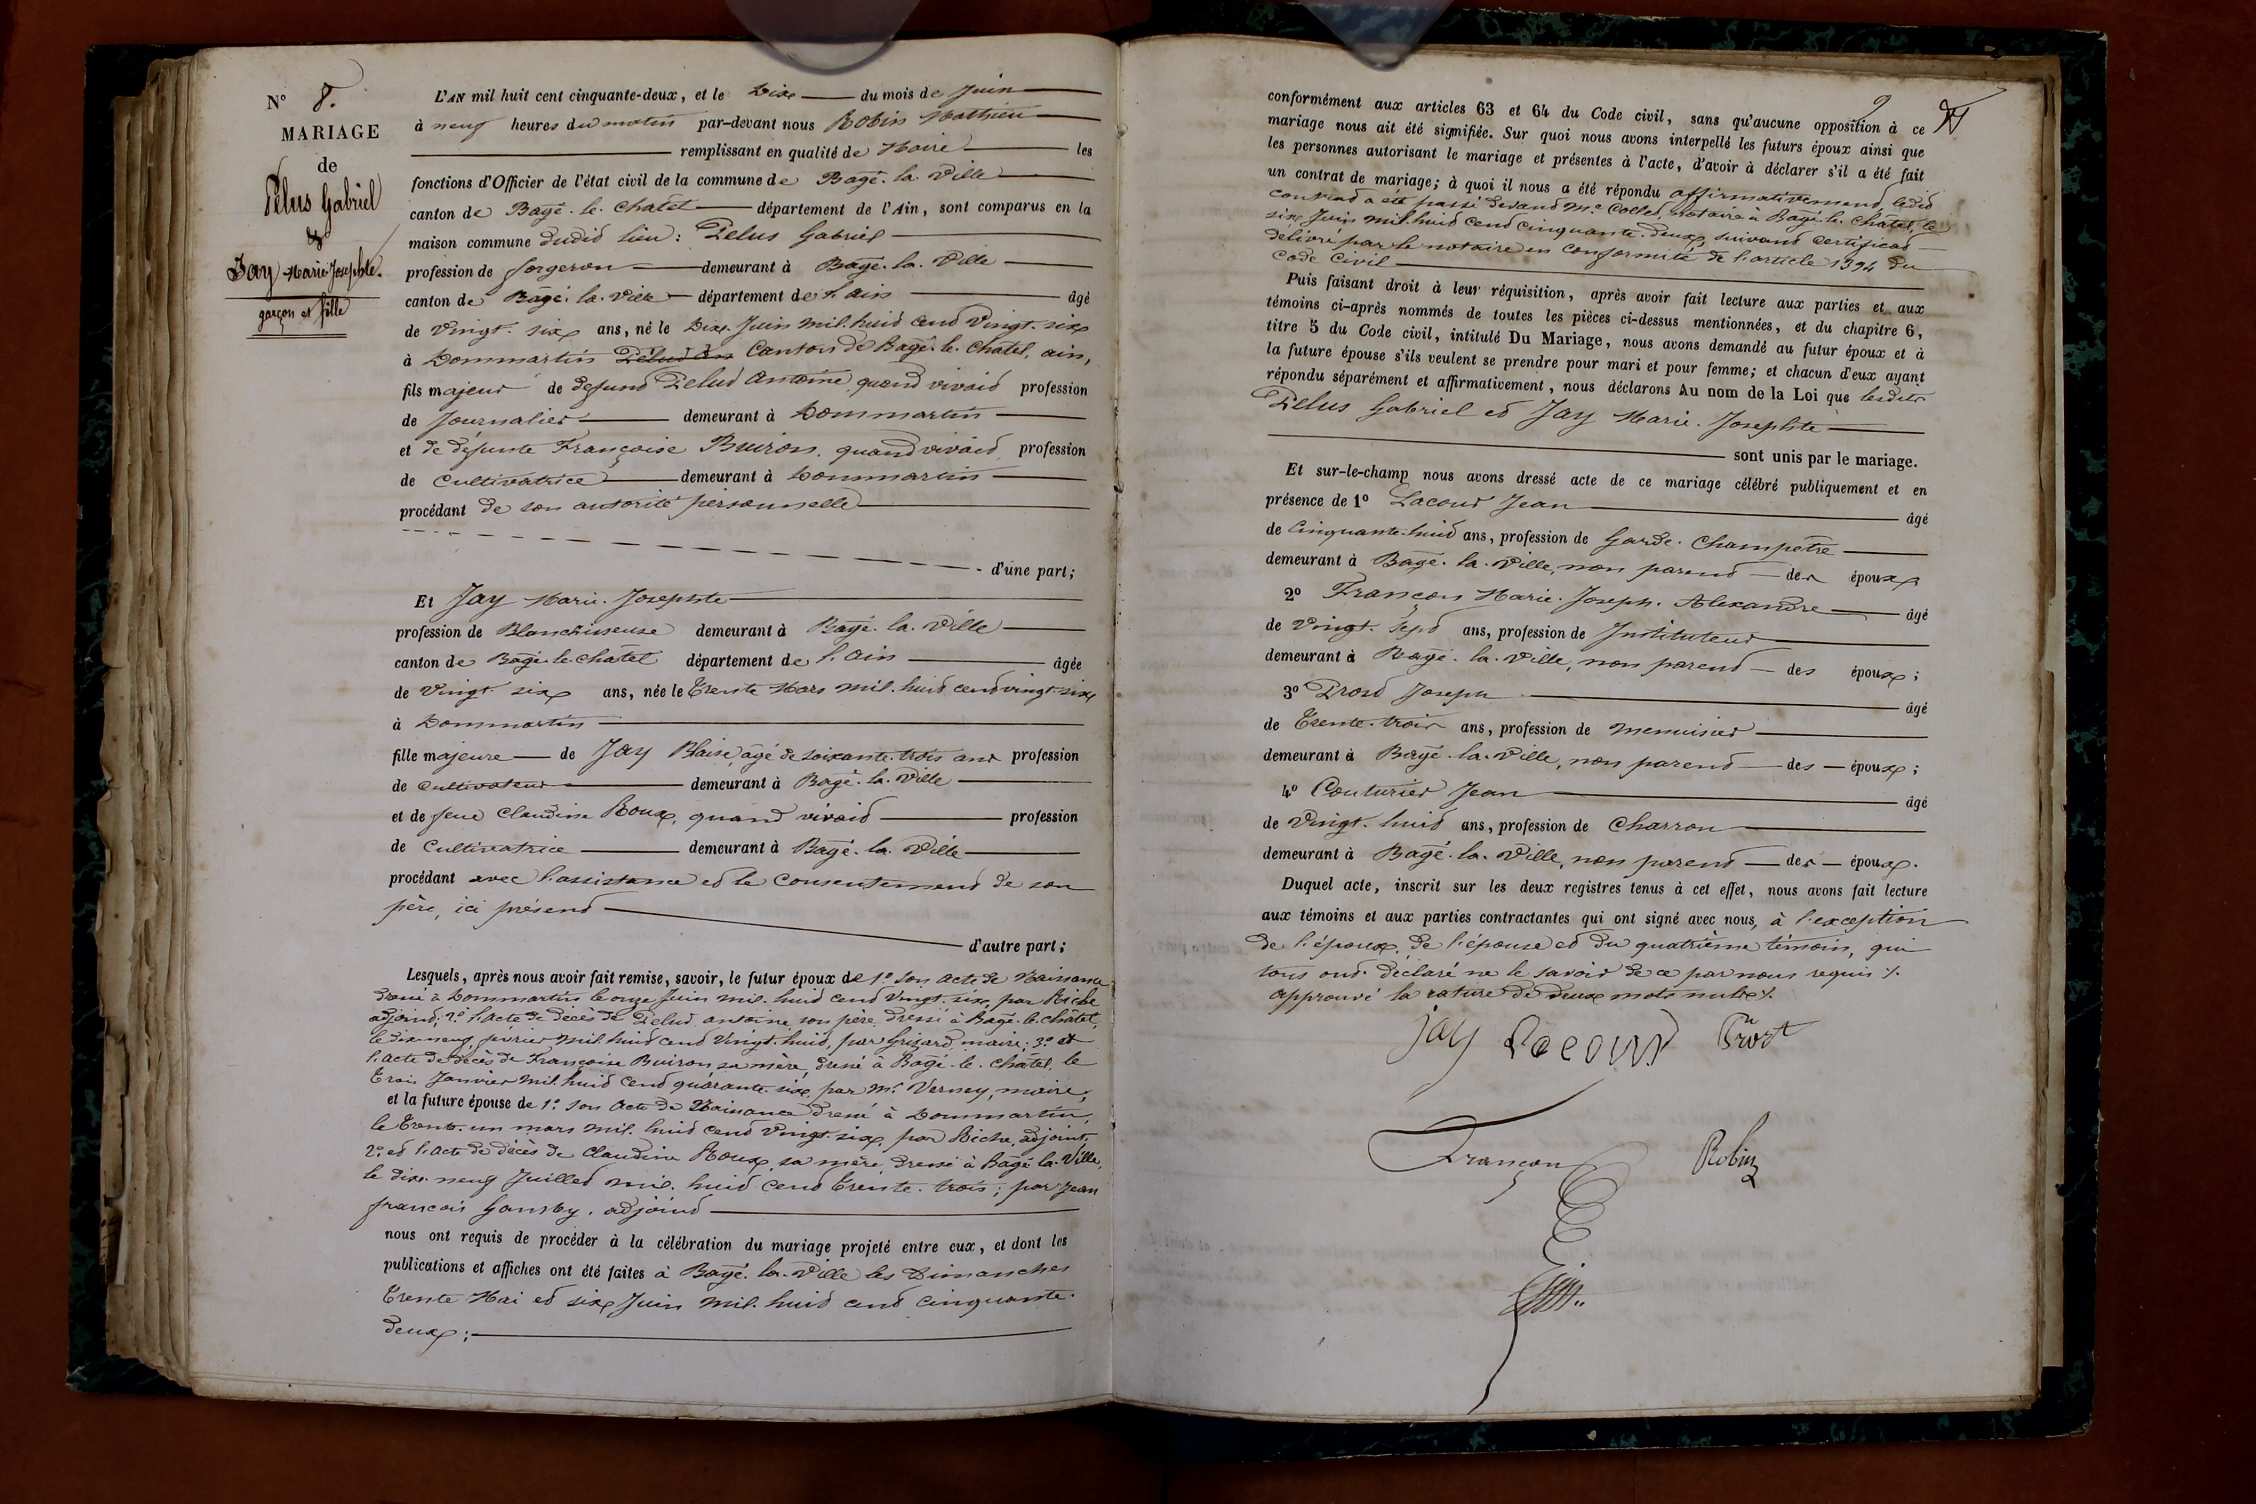 N° 8.
MARIAGE
de
Pélus Gabriel
&
Jay Marie Josephte.
garçon et fille
L'AN mil huit cent cinquante-deux, et le Dix du mois de Juin
à neuf heures du matin par-devant nous Robin Mathieu
remplissant en qualité de Maire les
fonctions d'Officier de l'état civil de la commune de Bagé-la-Ville
canton de Bagé-le-Châtel département de l'Ain, sont comparus en la
maison commune dudit lieu: Pelus Gabriel
profession de forgeron demeurant à Bagé-la-Ville
canton de Bagé-la-Ville département de l'ain âgé
de Vingt-six ans, né le Dix Juin mil-huit cent Vingt-six
à Dommartin Canton de Bagé-le-Châtel, ain,
fils majeur de defunt Pelud Antoine, quand vivait profession
de Journalier demeurant à Dommartin
et de défunte Françoise Buiron, quand vivait profession
de Cultivatrice demeurant à Dommartin
procédant de son autorité personnelle
d'une part;
Et Jay Marie-Josephte
profession de Blanchisseuse demeurant à Bagé-la-Ville
canton de Bagé-le-Châtel département de l'ain âgée
de Vingt-six ans, née le Trente Mars mil-huit cent vingt-six
à Dommartin
fille majeure de Jay Blaise, âgé de soixante-trois ans profession
de Cultivateur demeurant à Bagé-la-Ville
et de feue Claudine Roux, quand vivait profession
de Cultivatrice demeurant à Bagé-la-Ville
procédant avec l'assistance et le consentement de son
père, ici présent
d'autre part;
Lesquels, après nous avoir fait remise, savoir, le futur époux de 1° son acte de Naissance
dressé à Dommartin le onze Juin mil-huit cent Vingt-six, par Riche
adjoint, 2° l'acte de décès de Pelud antoine son père, dressé à Bagé-le-châtel,
le dix-neuf février mil huit cent Vingt-huit, par Grizard maire; 3° et
l'acte de décès de Françoise Buiron sa mère, dressé à Bagé-le-châtel, le
Trois Janvier mil huit cent quarante-six, par Mr Verney, maire,
et la future épouse de 1° son acte de Naissance dressé à Dommartin,
le Trente-un mars mil-huit cent Vingt-six, par Riche, adjoint,
2° et l'acte de décès de Claudine Roux, sa mère, dressé à Bagé-la-Ville,
le dix-neuf Juillet mil-huit cent Trente-trois; par Jean
françois adjoint
nous ont requis de procéder à la célébration du mariage projeté entre eux, et dont les
publications et affiches ont été faites à Bagé-la-Ville les Dimanches
Trente Mai et six Juin mil-huit cent cinquante-
deux;
9
conformément aux articles 63 et 64 du Code civil, sans qu'aucune opposition à ce
mariage nous ait été signifiée. Sur quoi nous avons interpellé les futurs époux ainsi que
les personnes autorisant le mariage et présentes à l'acte, d'avoir à déclarer s'il a été fait
un contrat de mariage; à quoi il nous a été répondu affirmativement, ledit
contrat a été passé devant Me notaire à Bagé-le-Châtel, le
six Juin mil-huit cent cinquante-deux, suivant certificat
délivré par le notaire en conformité de l'article 1394 du
Code Civil
Puis faisant droit à leur réquisition, après avoir fait lecture aux parties et aux
témoins ci-après nommés de toutes les pièces ci-dessus mentionnées, et du chapitre 6,
titre 5 du Code civil, intitulé Du Mariage, nous avons demandé au futur époux et à
la future épouse s'ils veulent se prendre pour mari et pour femme; et chacun d'eux ayant
répondu séparément et affirmativement, nous déclarons Au nom de la Loi que lesdits
Pelus Gabriel et Jay Marie-Josephte
sont unis par le mariage.
Et sur-le-champ nous avons dressé acte de ce mariage célébré publiquement et en
présence de 1° Lacour Jean âgé
de Cinquante-huit ans, profession de Garde-Champêtre
demeurant à Bagé-la-Ville, non parent des époux
2° Françon Marie-Joseph-Alexandre âgé
de Vingt-Sept ans, profession de Instituteur
demeurant à Bagé-la-Ville, non parent des époux;
3° Prost Joseph âgé
de Trente-trois ans, profession de menuisier
demeurant à Bagé-la-Ville, non parent des époux;
4° Couturier Jean âgé
de Vingt-huit ans, profession de Charron
demeurant à Bagé-la-Ville, non parent des époux.
Duquel acte, inscrit sur les deux registres tenus à cet effet, nous avons fait lecture
aux témoins et aux parties contractantes qui ont signé avec nous, à l'exception
de l'époux, de l'épouse et du quatrième témoin, qui
tous ont déclaré ne le savoir de ce par nous requis.
approuvé la rature de deux mots nuls.
jay Lacour Prost
Françon Robin